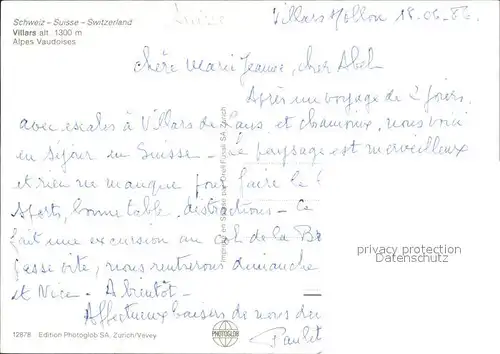 Schweiz - Suisse - Switzerland
Villars alt. 1300 m
Alpes Vaudoises
Suisse
Villars Hollon 18.06.86.
Chère Marie Jeanne, cher Abel
Après un voyage de 2 jours,
avec escales à Villars de Lans et chamonix, nous voici
en séjour en Suisse - Le paysage est merveilleux
et rien ne manque pour faire le
Sports, bonne table, distractions - Ce
fait une excursion au col de la
passe vite, nous rentrerons dimanche
et Nice - A bientôt -
Affectueux baisers de nous
Paulet
privacy protection
Imprimé en Suisse par Orell Füssli SA, Zurich
12878 Edition Photoglob SA, Zurich/Vevey
PHOTOGLOB